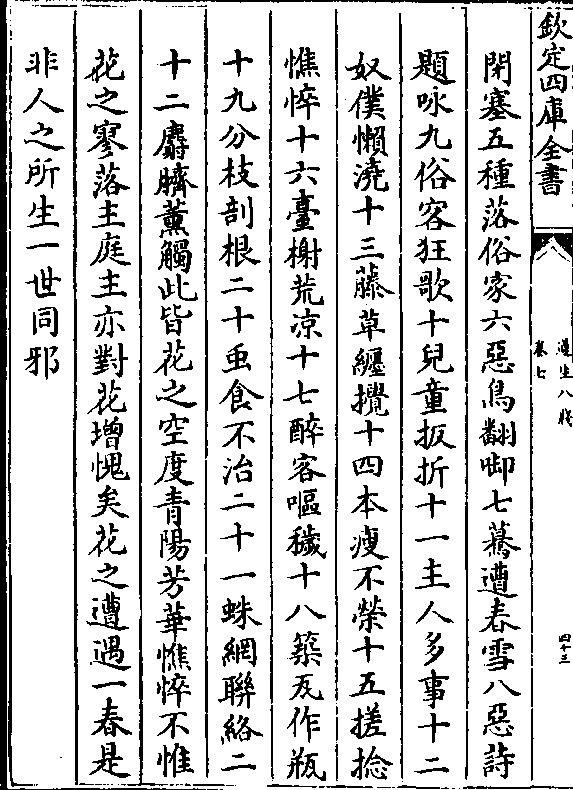 欽定四庫全書
遵生八牋
卷七
四十三
閉塞五種落俗家六惡鳥翻啣七驀遭春雪八惡詩
題咏九俗客狂歌十兒童扳折十一主人多事十二
奴僕懶澆十三藤草纏攪十四本瘦不榮十五搓捻
憔悴十六臺榭荒涼十七醉客嘔穢十八築瓦作瓶
十九分枝剖根二十虫食不治二十一蛛網聯絡二
十二麝臍薰觸此皆花之空度青陽芳華憔悴不惟
花之寥落主庭主亦對花增愧矣花之遭遇一春是
非人之所生一世同邪